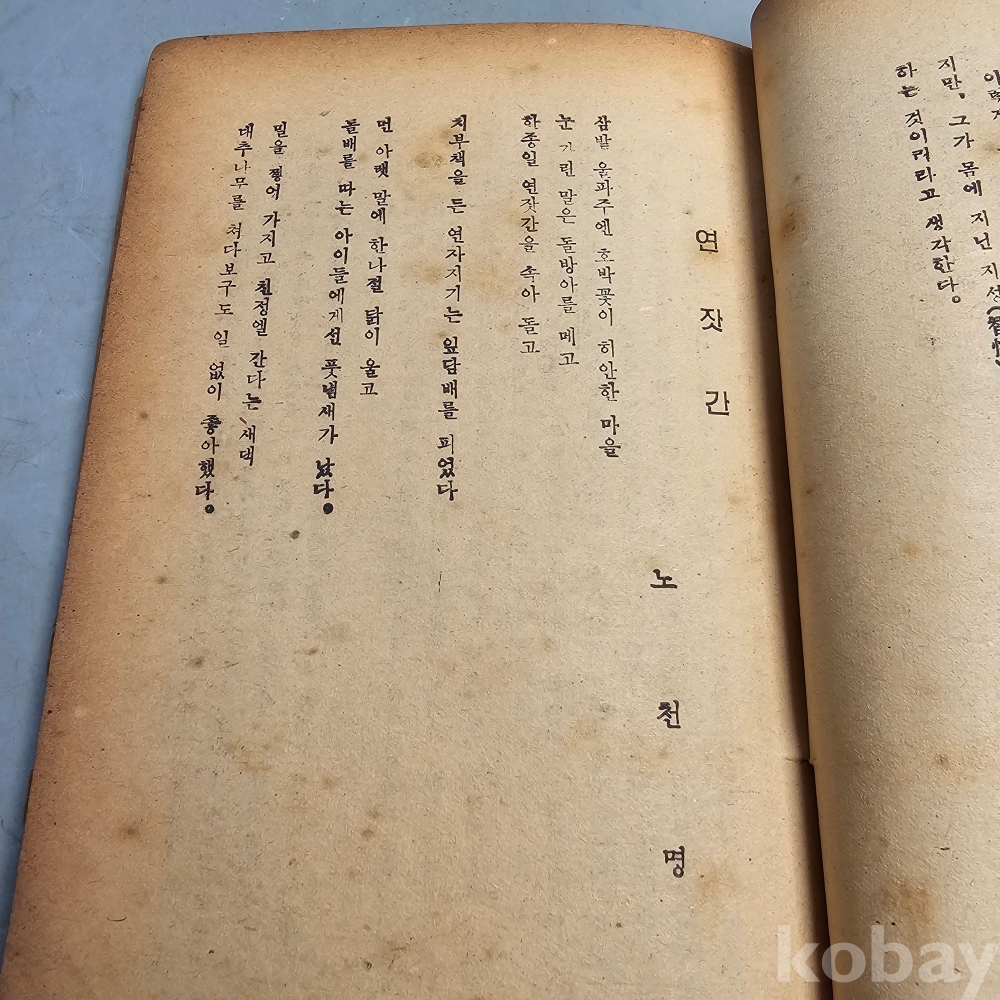 지만, 그가 몸에 지닌 지성(智性
하는 것이리라고 생각한다。
연잣간
노천명
삽발 울파주엔 호박꽃이 히안한 마을
눈 가린 말은 돌방아를 메고
하종일 연잣간을 속아 돌고
치부책을 든 연자지기는 잎담배를 피였다
먼 아랫 말에 한나절 닭이 울고
돌배를 따는 아이들에게선 풋냄새가 났다。
밀을 찧어 가지고 친정엘 간다는 새댁
대추나무를 쳐다보구도 일 없이 좋아했다。
kobay